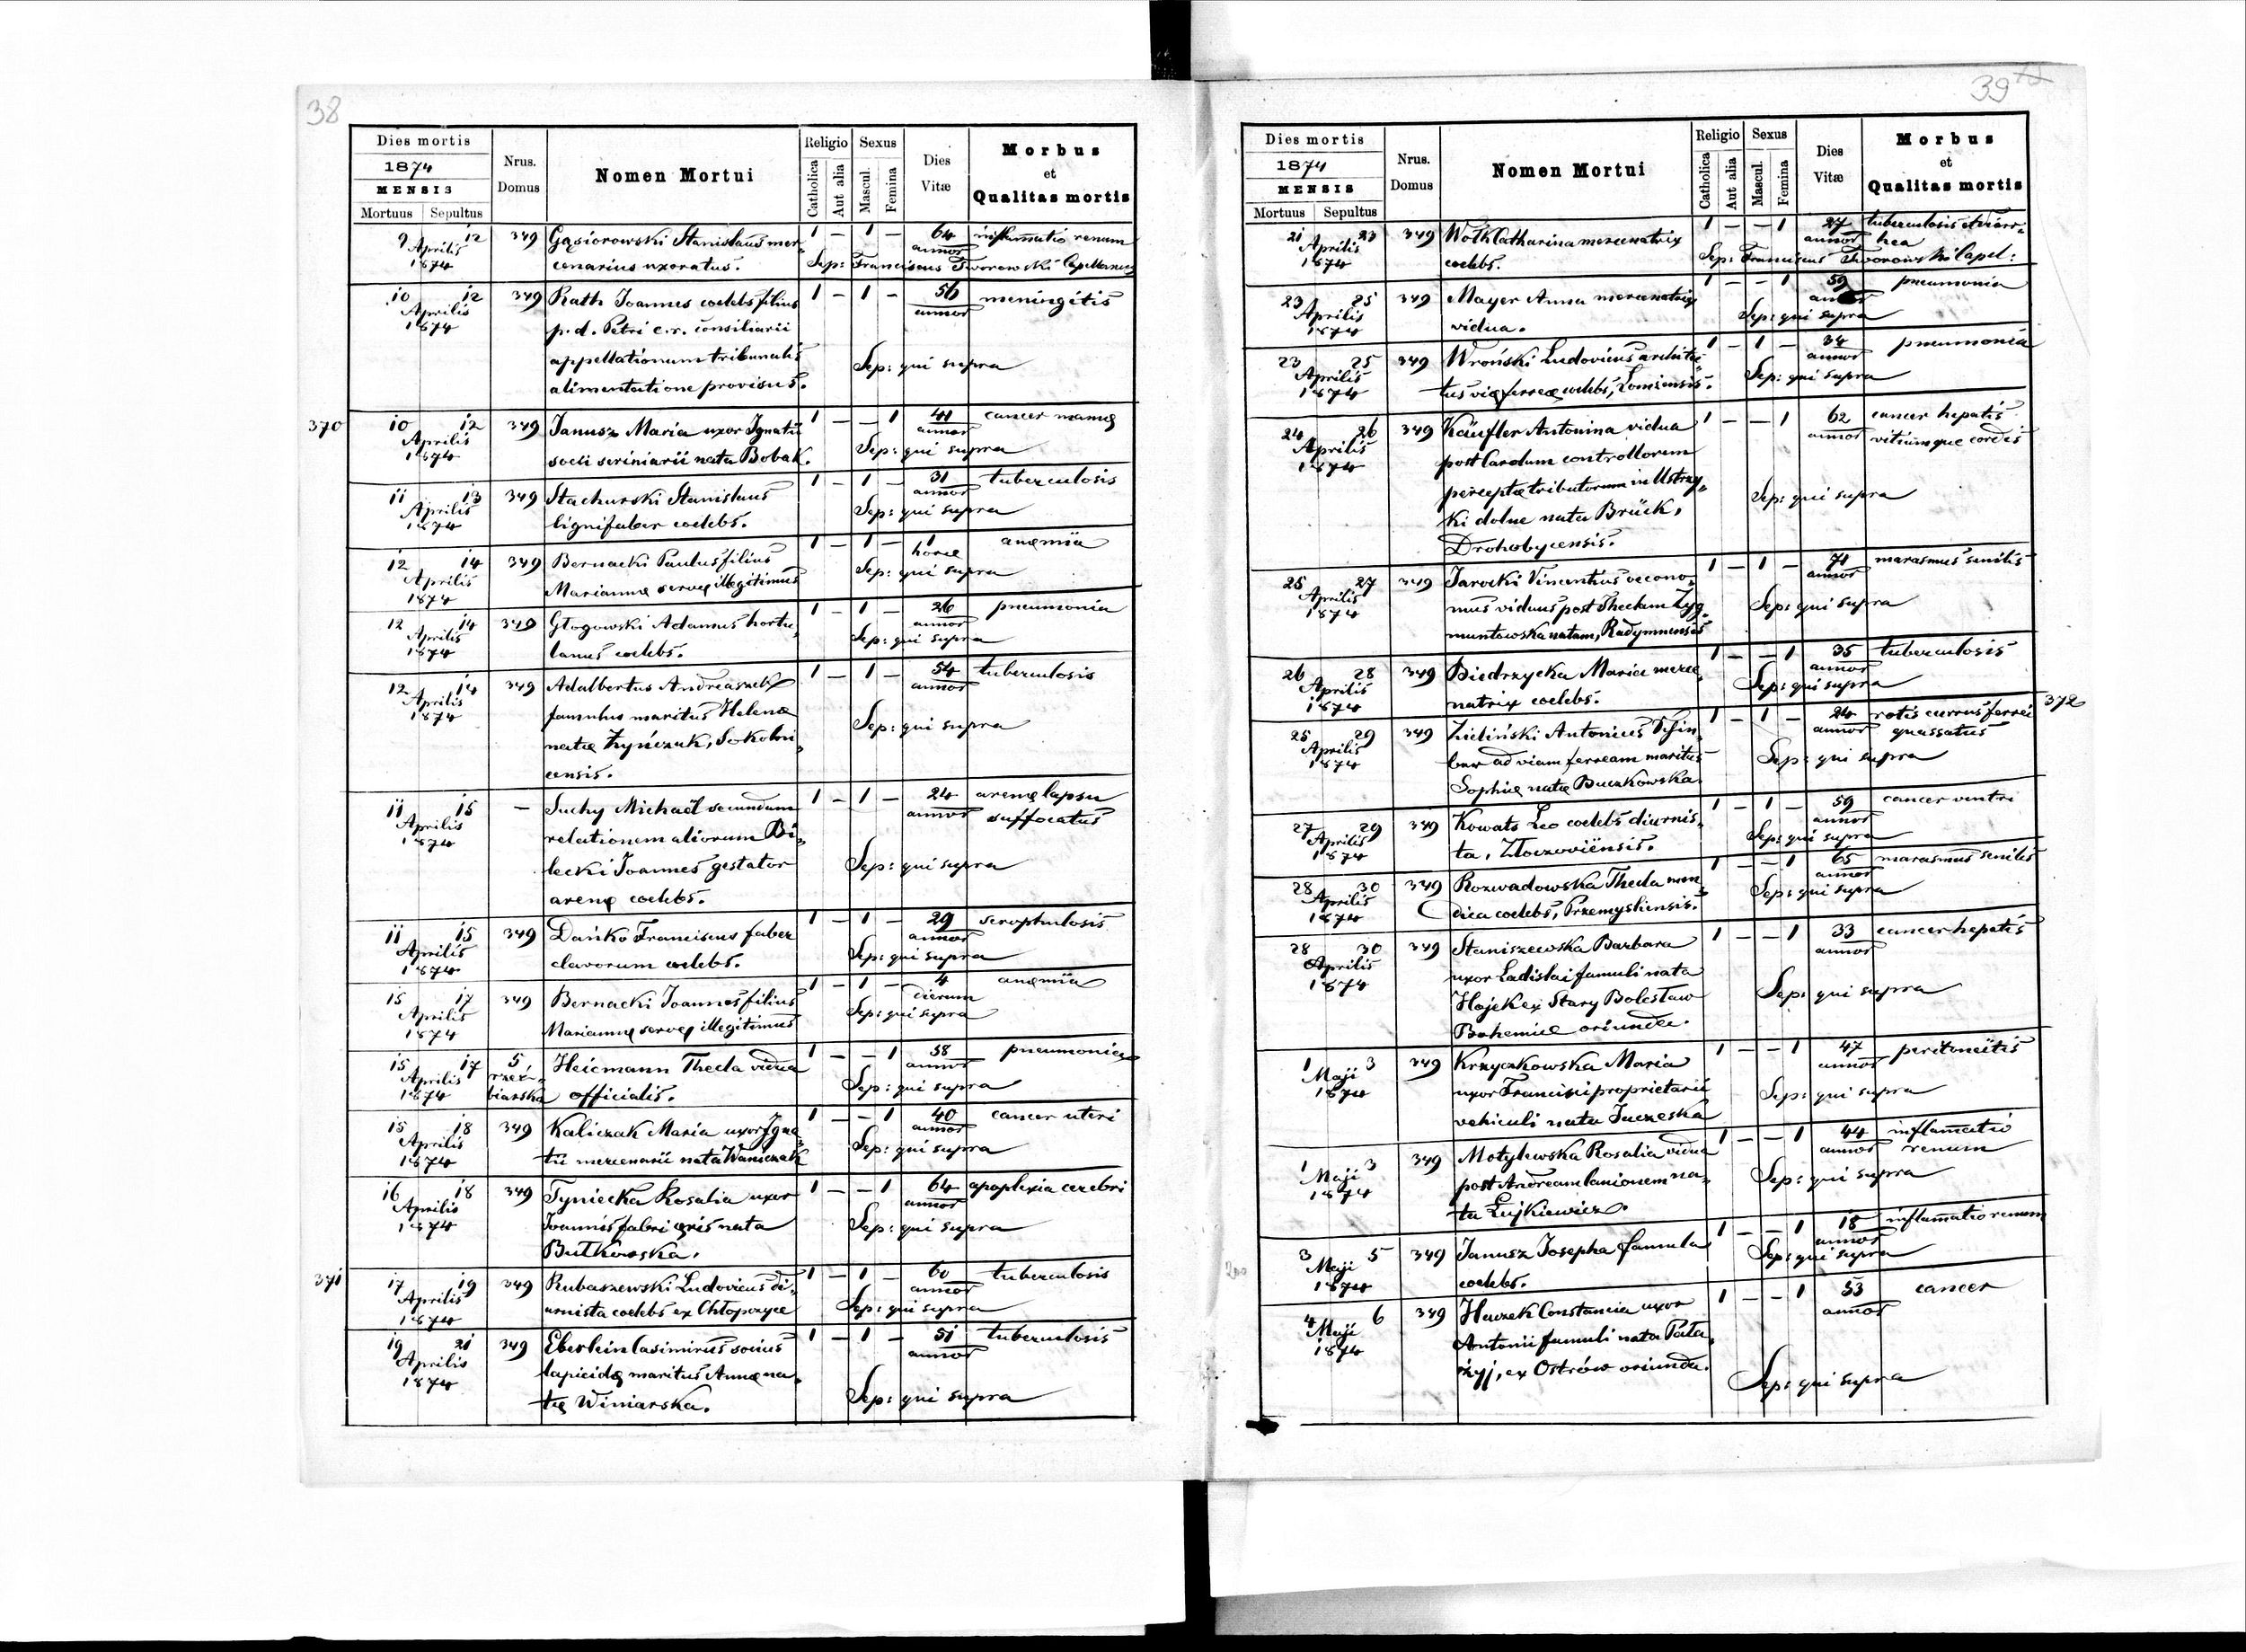 38
Dies mortis
1874
MENSIS
Mortuus Sepultus
Nrus. Domus
Nomen Mortui
Religio
Catholica
Aut alia
Sexus
Mascul.
Femina
Dies Vitæ
Morbus
et
Qualitas mortis
9 12 349 Gąsiorowski Stanislaus mer„ 1 – 1 – 64 inflamatio renum
Aprilis annor
1874 cenarius uxoratus. Sep: Franciscus Tworowski Capellanus
10 12 349 Rath Joannes coelebs filius 1 – 1 – 56 meningitis
Aprilis annor
1874 p. d. Petri c. r. consiliarii
appellationum tribunalis Sep: qui supra
alimentatione provisus.
370 10 12 349 Janusz Maria uxor Ignatii 1 – – 1 41 cancer mamę
Aprilis annor
1874 socii scriniarii nata Bobak. Sep: qui supra
11 13 349 Stachurski Stanislaus 1 – 1 – 31 tuberculosis
Aprilis annor
1874 lignifaber coelebs. Sep: qui supra
12 14 349 Bernacki Paulus filius 1 – 1 – 1 anęmia
Aprilis horæ
1874 Mariannę servę illegitimus Sep: qui supra
12 14 349 Głogowski Adamus hortu„ 1 – 1 – 26 pneumonia
Aprilis annor
1874 lanus coelebs. Sep: qui supra
12 14 349 Adalbertus Andreaszek 1 – 1 – 54 tuberculosis
Aprilis annor
1874 famulus maritus Helenæ
natæ Żyńczuk, Sokolni„ Sep: qui supra
censis.
11 15 – Suchy Michaël secundum 1 – 1 – 24 arenę lapsu
Aprilis annor suffocatus
1874 relationem aliorum Bi„
lecki Joannes gestator Sep: qui supra
arenę coelebs.
11 15 349 Dańko Franciscus faber 1 – 1 – 29 scrophulosis
Aprilis annor
1874 clavorum coelebs. Sep: qui supra
15 17 349 Bernacki Joannes filius 1 – 1 – 4 anęmia
Aprilis dierum
1874 Mariannę servę illegitimus Sep: qui supra
15 17 5 Heicmann Thecla vidua 1 – – 1 58 pneumonia
Aprilis rzeź„ annor
1874 biarska officialis. Sep: qui supra
15 18 349 Kaliczak Maria uxor Igna„ 1 – – 1 40 cancer uteri
Aprilis annor
1874 tii mercenarii nata Waniczak Sep: qui supra
16 18 349 Tyniecka Rosalia uxor 1 – – 1 64 apoplexia cerebri
Aprilis annor
1874 Joannis fabri ęris nata Sep: qui supra
Butkowska.
371 17 19 349 Rubaszewski Ludovicus di„ 1 – 1 – 60 tuberculosis
Aprilis annor
1874 urnista coelebs ex Chłopczyce Sep: qui supra
19 21 349 Eberlein Casimirus socius 1 – 1 – 51 tuberculosis
Aprilis annor
1874 lapicidę maritus Annę na„
tę Winiarska. Sep: qui supra
39
Dies mortis
1874
MENSIS
Mortuus Sepultus
Nrus. Domus
Nomen Mortui
Religio
Catholica
Aut alia
Sexus
Mascul.
Femina
Dies Vitæ
Morbus
et
Qualitas mortis
21 23 349 Wołk Catharina mercenatrix 1 – – 1 27 tuberculosis et diarr„
Aprilis annor hea
1874 coelebs. Sep: Franciscus Tworowski Capel:
23 25 349 Mayer Anna mercenatrix 1 – – 1 59 pneumonia
Aprilis
1874 vidua. Sep: qui supra
23 25 349 Wroński Ludovicus architec„ 1 – 1 – 34 pneumonia
Aprilis annor
1874 tus vię ferreę coelebs, Sep: qui supra
24 26 349 Käufler Antonina vidua 1 – – 1 62 cancer hepatis
Aprilis annor vitiumque cordis
1874 post Carolum controllorum
perceptæ tributorum in Ustrzy„ Sep: qui supra
ki dolne nata Brück,
Drohobycensis.
25 27 349 Jarocki Vincentius oecono„ 1 – 1 – 71 marasmus senilis
Aprilis annor
1874 mus viduus post Theclam Zyg„ Sep: qui supra
muntowska natam, Radymnensis
26 28 349 Biedrzycka Maria merce„ 1 – – 1 35 tuberculosis
Aprilis annor
1874 natrix coelebs. Sep: qui supra
25 29 349 Zieliński Antonius 1 – 1 – 24 rotis currus ferrei 372
Aprilis annor quassatus
1874 ad viam ferream maritus Sep: qui supra
Sophię natę Buczkowska.
27 29 349 Kowats Leo coelebs diurnis„ 1 – 1 – 59 cancer ventri
Aprilis annor
1874 ta, Złoczoviensis. Sep: qui supra
28 30 349 Rozwadowska Thecla men„ 1 – – 1 65 marasmus senilis
Aprilis annor
1874 dica coelebs, Przemysliensis. Sep: qui supra
28 30 349 Staniszewska Barbara 1 – – 1 33 cancer hepatis
Aprilis annor
1874 uxor Ladislai famuli nata
Hajek ex Stary Bolesław Sep: qui supra
Bohemiæ oriunda.
1 3 349 Krzyczkowska Maria 1 – – 1 47 peritoneitis
Maji annor
1874 uxor Francisci proprietarii Sep: qui supra
vehiculi nata Juczeska
1 3 349 Motylewska Rosalia vidua 1 – – 1 44 inflamatio
Maji annor renum
1874 post Andream lanionem na„ Sep: qui supra
ta Lujkiewicz.
3 5 349 Janusz Josepha famula 1 – – 1 18 inflamatio renum
Maji annor
1874 coelebs. Sep: qui supra
4 6 349 Huczek Constancia uxor 1 – – 1 53 cancer
Maji annor
1874 Antonii famuli nata Pała„
żyj, ex Ostrów oriunda. Sep: qui supra